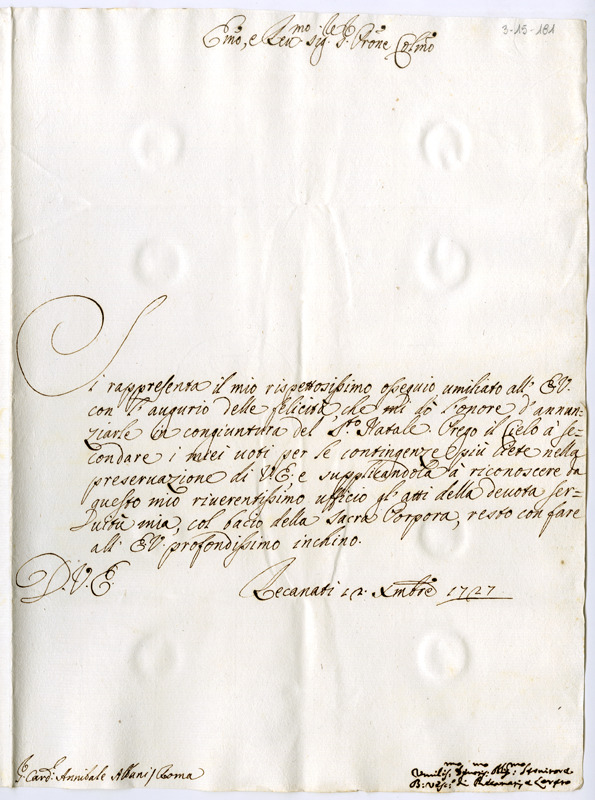 3-15-181
Emo, e Rev.mo Sig.r P.rone Col.mo
Si rappresenta il mio rispettosissimo ossequio umiliato all' E.V.
con l' augurio delle felicità, che mi dò l'onore d'annun-
ziarle in congiuntura del S.to Natale. Prego il Cielo à se-
condare i miei voti per le contingenze più liete nella
preservazione di V.E. e supplicandola à riconoscere in
questo mio riverentissimo ufficio gl' atti della devota ser-
vitù mia, col bacio della Sacra Porpora, resto con fare
all' E.V. profondissimo inchino.
D.V.E.
Recanati 12. Xmbre 1727
S.r Card. Annibale Albani / Roma
Umilis.mo
B: Vesc.o di Recanati, e Loreto